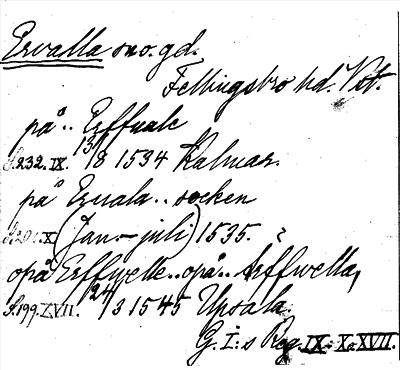 Ervalla sno. gd.
Fellingsbro hd. Vst.
på.. Erffuale
S.232. IX. 13/8 1534 Kalmar.
på Eruala.. socken
X (Jan.-juli) 1535.
opå Erffwelle.. opå.. Arffwella,
S.199. XVII. 24/3 1545 Upsala.
G. I:s Reg. IX. X. XVII.